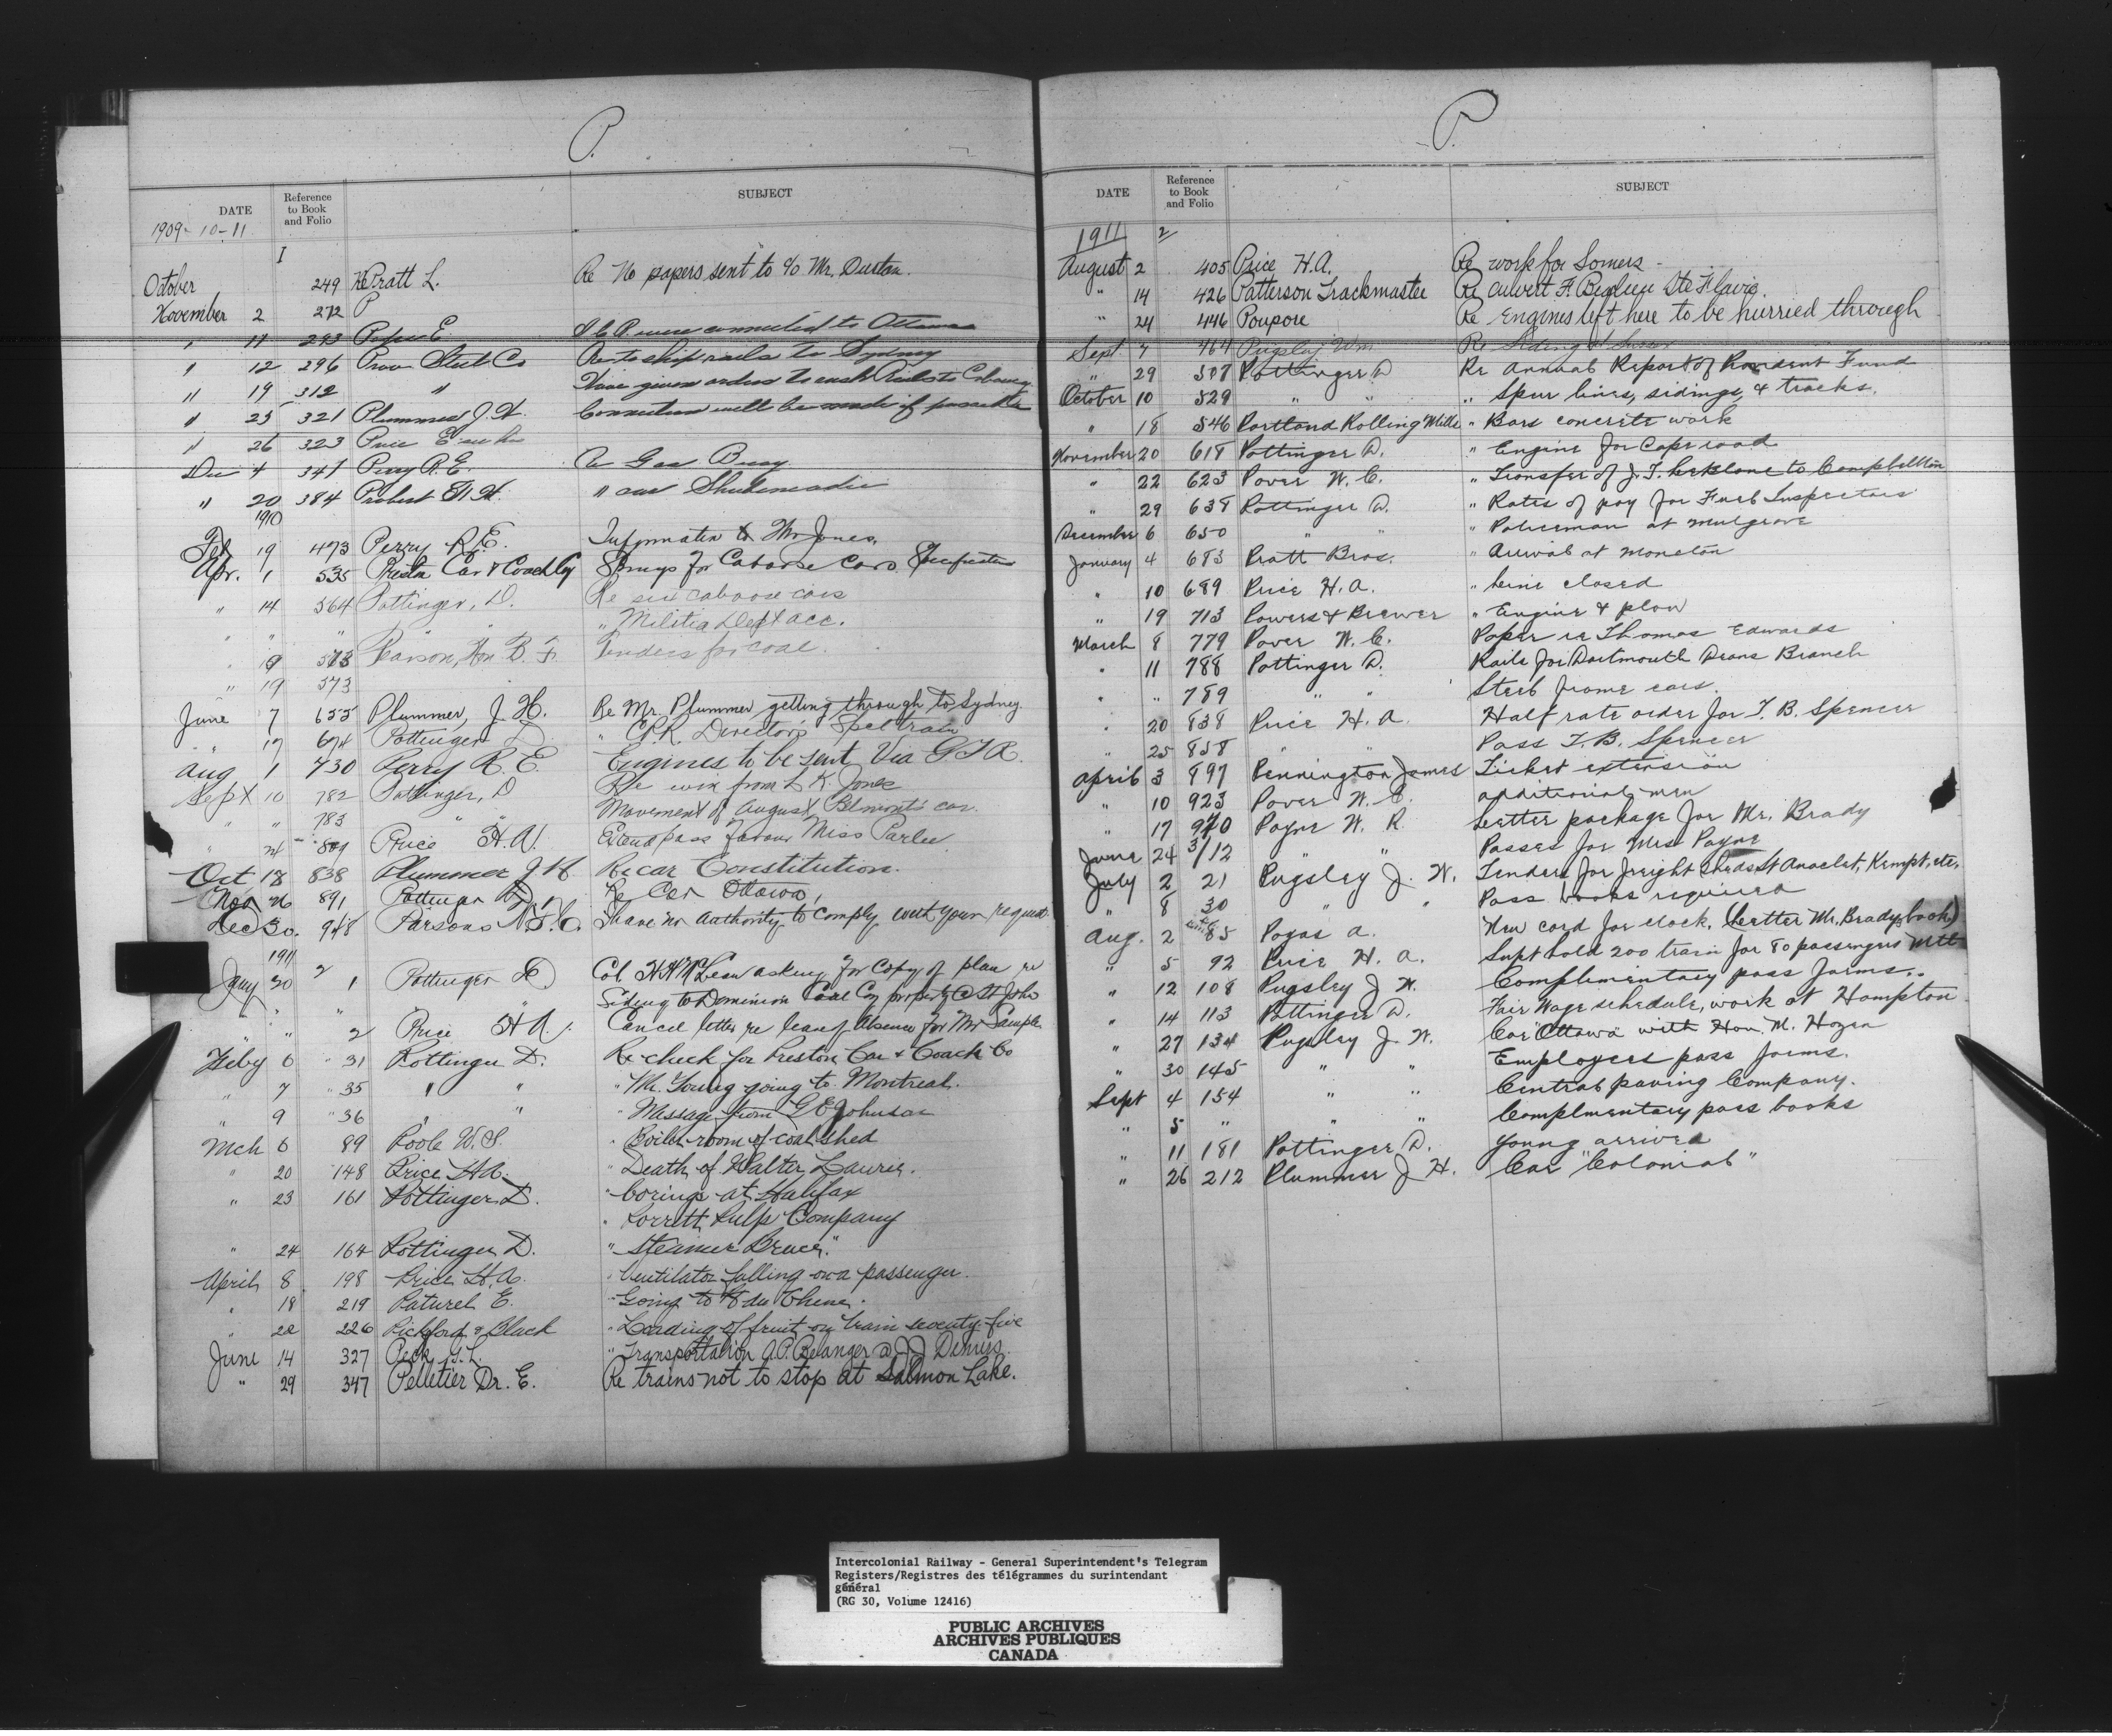 P.
DATE Reference to Book and Folio SUBJECT
1909-10-11
I
October 249 Re Pratt L. Re No papers sent to c/o Mr.
November 2 272 P
" 11 293 Pope E connected to Ottawa
" 12 296 Prov Steel Co to ship rails to Sydney
" 19 312 " Have given orders to rush Rails to
" 25 321 Plummer J. H. Connection will be made if possible
" 26 323 Price
Dec 4 347 Perry R. E. Re Gas Buoy
" 20 384 Probert W. H. " car Shubenacadie
1910
Feb 19 473 Perry R. E. Information to Mr Jones.
Apr. 1 535 Preston Car & Coach Coy Springs for Caboose Cars Specification
" 14 564 Pottinger, D. Re six caboose cars
" " " " Militia Dept acc.
" 19 573 Pearson, Hon B. F. Tenders for coal.
" 19 573
June 7 655 Plummer, J. H. Re Mr. Plummer getting through to Sydney.
" 17 674 Pottinger D. " C.P.R. Directors Spel train
Aug 1 730 Perry R. E. Engines to be sent Via G T R.
Sept 10 782 Pottinger, D Re wire from L. K. Jones
" " 783 " " Movement of August Belmont's car.
" 24 809 Price H. A. Extend pass favour Miss Parlee.
Oct 18 838 Plummer J H Re car Constitution.
Nov 26 891 Pottinger D. Re Car Ottawa,
Dec 30. 948 Parsons I have no authority to comply with your request.
1911
Jany 30 2 1 Pottinger D Col H H McLean asking for copy of plan re
" " " Siding to Dominion Coal Coy property @ St John
" " 2 Price H A. Cancel letter re leave of absence for Mr Sample
Feby 6 " 31 Pottinger D. Re check for Preston Car & Coach Co
" 7 " 35 " " " Mr. Young going to Montreal.
" 9 " 36 " " " Message from G E Johnson
Mch 6 89 Poole W. S. " Boiler room of coal shed
" 20 148 Price H. A. " Death of Walter Lawrie.
" 23 161 Pottinger D. " borings at Halifax
" Pulp Company
" 24 164 Pottinger D. " Steamer Bruce."
April 8 198 Price H. A. " Ventilator falling on a passenger.
" 18 219 Paturel E. " Going to du Chene.
" 22 226 Pickford & Black " Loading of fruit on train seventy-five
June 14 327 Peck " Transportation A. P. Belanger
" 29 347 Pelletier Dr. E. Re trains not to stop at Salmon Lake.
P.
DATE Reference to Book and Folio SUBJECT
1911 2
August 2 405 Price H. A. Re work for Somers
" 14 426 Patterson Trackmaster Re culvert Ste Flavie.
" 24 446 Poupore Re Engines left here to be hurried through
Sept 7 464 Pugsley Wm Re Siding at Sussex
" 29 507 Pottinger D Re Annual Report of Provident Fund
October 10 529 " " " Spur lines, sidings, & tracks.
" 18 546 Portland Rolling Mills " Bars concrete work
November 20 618 Pottinger D. " Engine for Cape road
" 22 623 Pover W. C. " Transfer of J. T. to Campbellton
" 29 638 Pottinger D. " Rates of pay for Fuel Inspectors
December 6 650 " " " Policeman at Mulgrave
January 4 683 Pratt Bros. " Arrival at Moncton
" 10 689 Price H. A. " Line closed
" 19 713 Powers & Brewer " Engine & plow
March 8 779 Pover W. C. Paper re Thomas Edwards
" 11 788 Pottinger D. Rails for Dartmouth Deans Branch
" " 789 " " Steel frame cars.
" 20 838 Price H. A. Half rate order for T. B. Spencer
" 25 858 " " Pass T. B. Spencer
April 3 897 Pennington James Ticket extension
" 10 923 Pover W. C. additional men
" 17 970 Payne W. R. Letter package for Mr. Brady
June 24 3/12 " " Passes for Mrs Payne
July 2 21 Pugsley J. W. Tenders for freight sheds St Anaclet, Kempt, etc.
" 8 30 " " Pass books required
Aug. 2 85 Pogas A. New cord for clock. (Letter Mr. Bradys book)
" 5 92 Price H. A. Supt hold 200 train for 80 passengers Mtl
" 12 108 Pugsley J W. Complimentary pass forms..
" 14 113 Pottinger D. Fair Wage schedule, work at Hampton
" 27 134 Pugsley J. W. Car "Ottawa" with Hon. M. Hazen
" 30 145 " " Employees pass forms.
Sept 4 154 " " Central paving Company.
" 5 " " " Complmentary pass books
" 11 181 Pottinger D. Young arrived
" 26 212 Plummer J H. Car "Colonial"
Intercolonial Railway - General Superintendent's Telegram
Registers/Registres des télégrammes du surintendant
général
(RG 30, Volume 12416)
PUBLIC ARCHIVES
ARCHIVES PUBLIQUES
CANADA